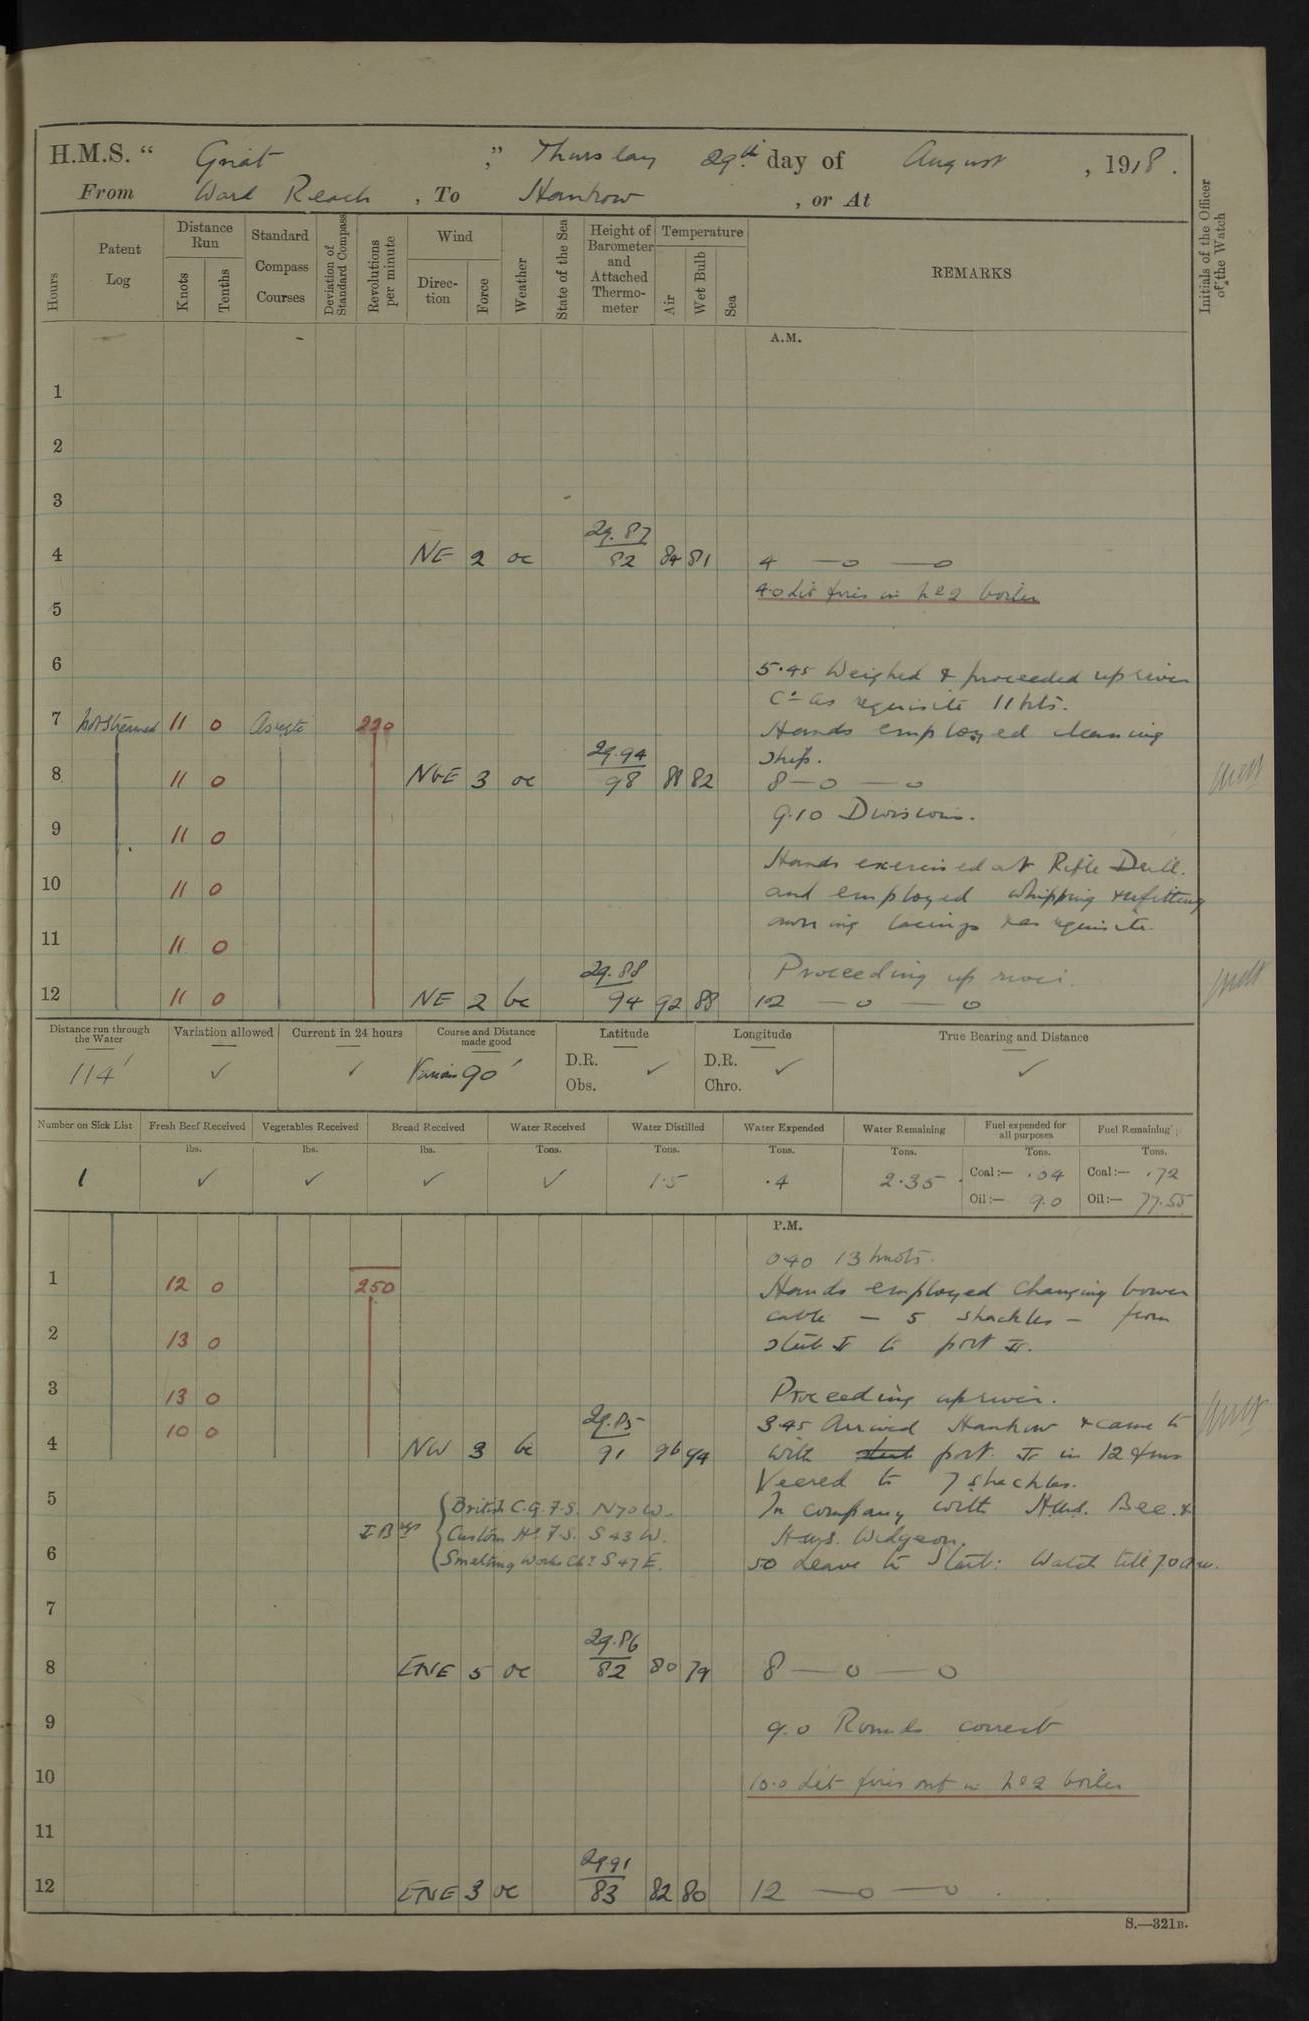 H.M.S. " Gnat ," Thursday 29th day of August , 1918.
From Ward Reach , To Hankow , or At
Hours
Patent Log
Distance Run
Knots
Tenths
Standard Compass Courses
Deviation of Standard Compass
Revolutions per minute
Wind
Direc-tion
Force
Weather
State of the Sea
Height of Barometer and Attached Thermo-meter
Temperature
Air
Wet Bulb
Sea
REMARKS
Initials of the Officer of the Watch
A.M.
1
2
3
29.87
4 NE 2 oc 82 84 81 4 — o — o
4.0 Lit fires in No 2 boiler
5
6
5.45 Weighed & proceeded up river
Co as requisite 11 kts.
7 Not Streamed 11 0 As reqte 220 Hands employed cleaning
29.94 ship.
8 11 0 NbE 3 oc 98 88 82 8 — o — o
9.10 Divisions.
9 11 0
Hands exercised at Rifle Drill.
10 11 0 and employed whipping & refitting
awning lacings & as requisite.
11 11 0
29.88 Proceeding up river.
12 11 0 NE 2 bc 94 92 88 12 — o — o
Distance run through the Water
Variation allowed
Current in 24 hours
Course and Distance made good
Latitude
Longitude
True Bearing and Distance
114' ✓ ✓ Various 90' D.R. Obs. ✓ D.R. Chro. ✓ ✓
Number on Sick List
Fresh Beef Received
Vegetables Received
Bread Received
Water Received
Water Distilled
Water Expended
Water Remaining
Fuel expended for all purposes
Fuel Remaining
lbs. lbs. lbs. Tons. Tons. Tons. Tons. Tons. Tons.
1 ✓ ✓ ✓ ✓ 1.5 .4 2.35 Coal:— .04 Coal:— .72
Oil:— 9.0 Oil:— 77.55
P.M.
0.40 13 knots.
1 12 0 250 Hands employed changing bower
cable — 5 shackles — from
2 13 0 stbd to port
3 13 0 Proceeding up river.
10 0 29.85 3.45 Arrived Hankow & came to
4 NW 3 bc 91 96 94 with stbd port in 12 fms
Veered to 7 shackles.
5 British C.G. F.S. N70W. In company with H.M.S. Bee &
Custom Hse F.S. S 43 W. H.M.S. Widgeon.
6 Smelting Works Chy S 47 E. 5.0 Leave to Starbd: Watch till 7.0 a.m.
7
29.86
8 ENE 5 oc 82 80 79 8 — o — o
9 9.0 Rounds correct
10 10.0 Let fires out in No 2 boiler
11
29.91
12 ENE 3 oc 83 82 80 12 — o — o
S.—321B.